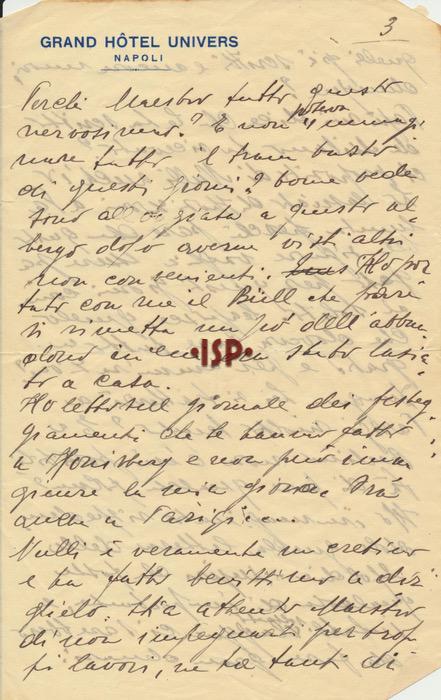 3
GRAND HÔTEL UNIVERS
NAPOLI
Perché Maestro tutto questo
nervosismo? E non poteva immagi
nare tutto il tram busto
di questi giorni? Come vede
sono alloggiata a questo al
bergo dopo averne visti altri
non convenienti. Ho por
tato con me il Büll che
si rimetta un po' dell'abban
dono in cui stato lascia
to a casa.
Ho letto sul giornale dei festeg
giamenti che le hanno fatto
a Könisberg e non può imma
ginare la mia gioia. Ora
a Parigi
Nulli è veramente un cretino
e ha fatto benissimo a dir
glielo. Stia attento Maestro
di non impegnarsi per trop
pi lavori, ne ha tanti di
•ISP•